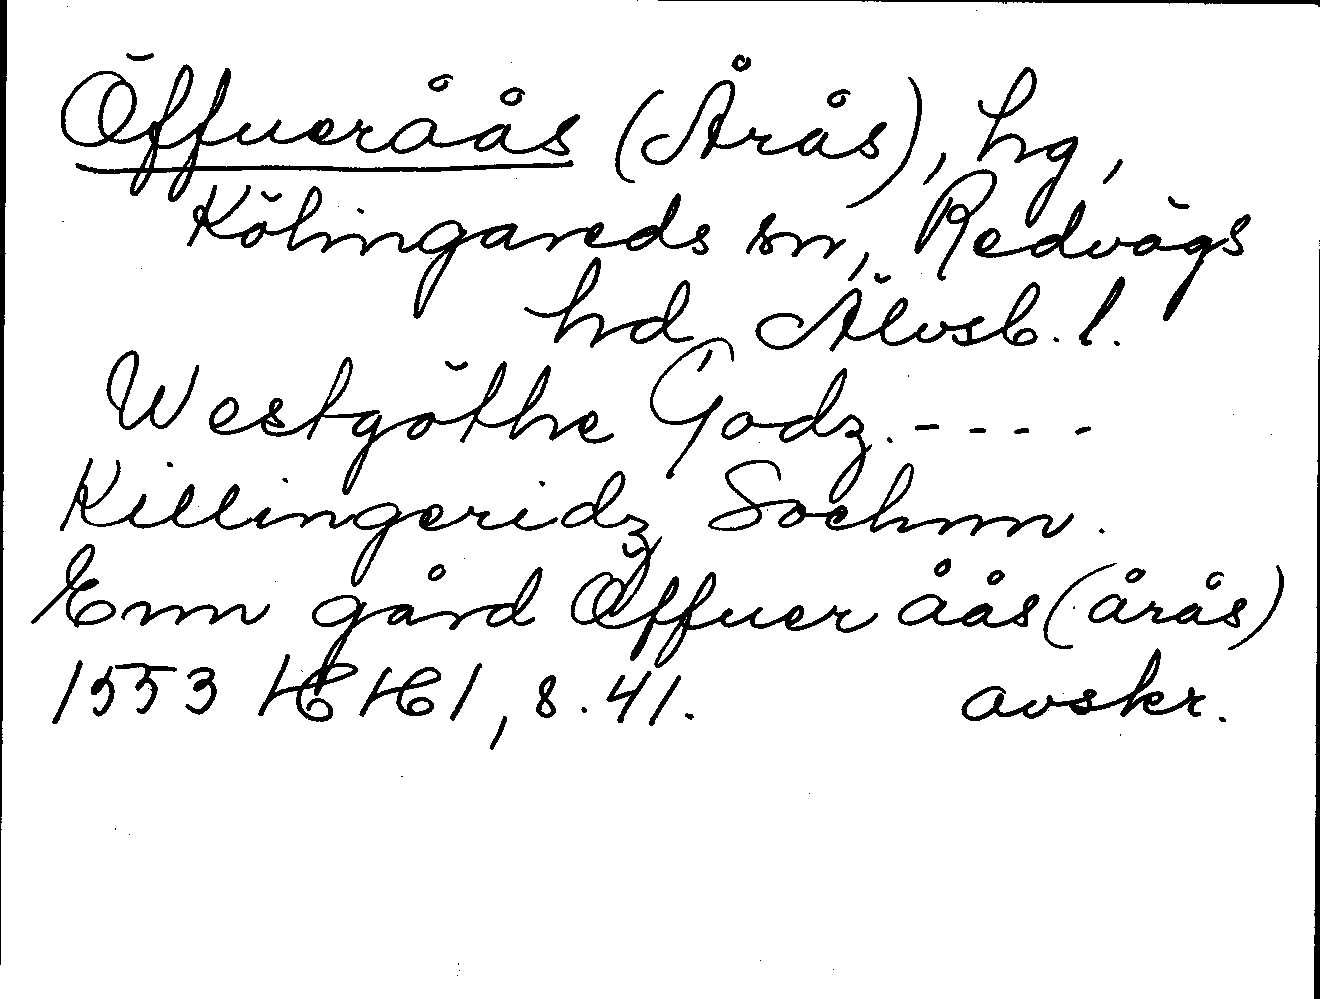 Öffueråås (Årås), hg,
Kölingareds sn, Redvägs
hd, Älvsb. l.
Westgöthe Godz. - - - -
Killingeridz Sochnn.
Enn gård Öffuer åås (årås)
1553 HH 1, s. 41. avskr.